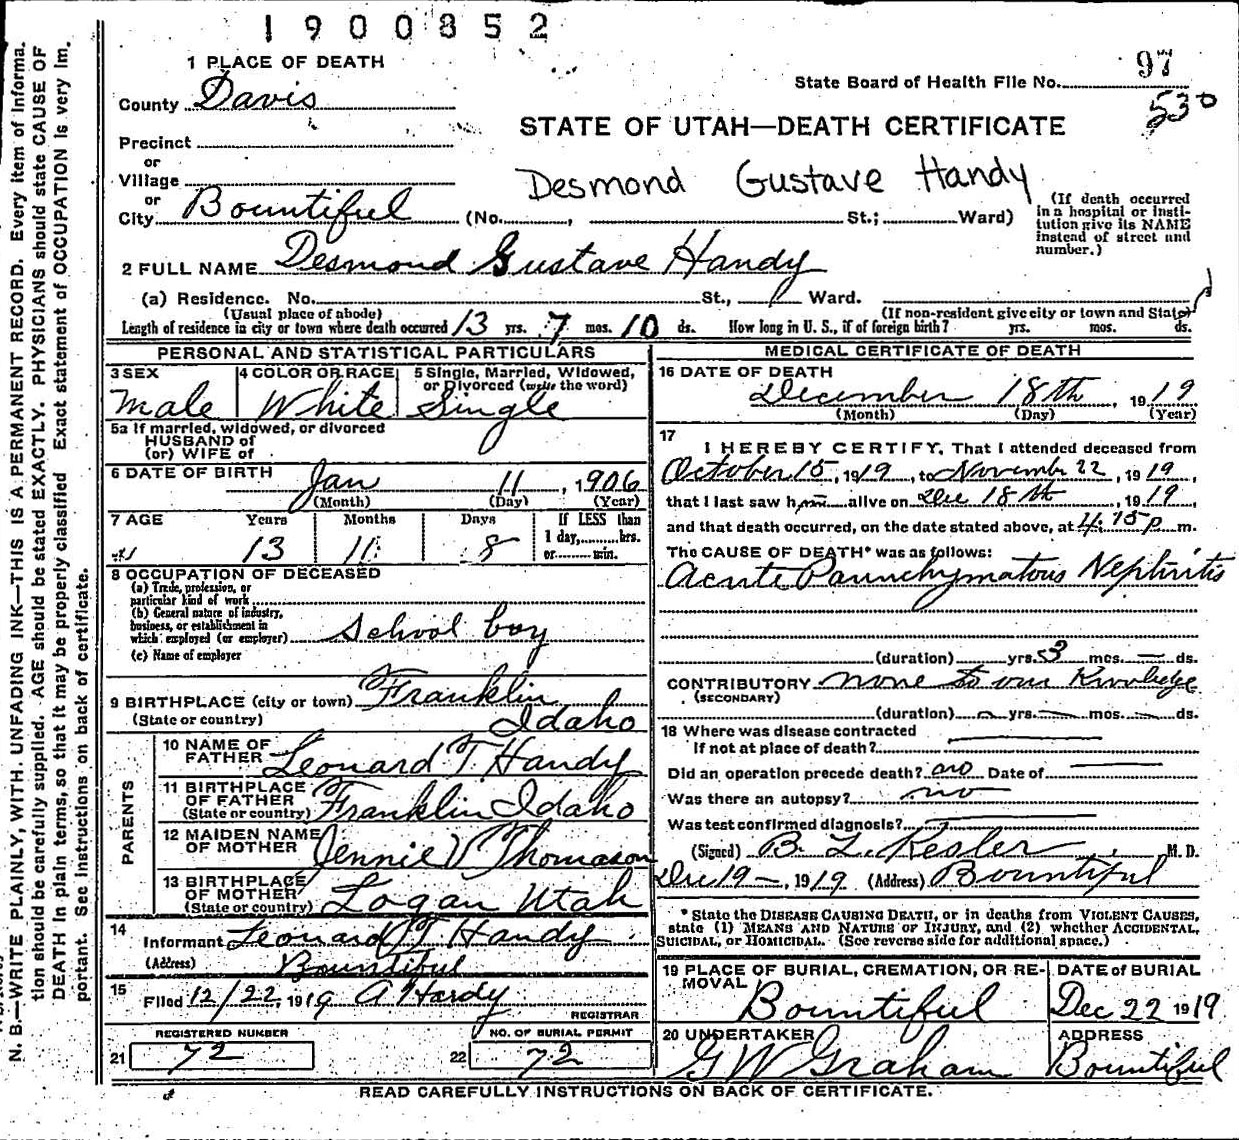 1900852
1 PLACE OF DEATH
State Board of Health File No. 97
County Davis
530
STATE OF UTAH—DEATH CERTIFICATE
Precinct
or
Village
Desmond Gustave Handy
or
City Bountiful (No. , St.; Ward)
(If death occurred in a hospital or insti-
tution give its NAME instead of street and number.)
2 FULL NAME Desmond Gustave Handy
(a) Residence. No. St., Ward.
(Usual place of abode) (If non-resident give city or town and State)
Length of residence in city or town where death occurred 13 yrs. 7 mos. 10 ds. How long in U. S., if of foreign birth? yrs. mos. ds.
PERSONAL AND STATISTICAL PARTICULARS
3 SEX
Male
4 COLOR OR RACE
White
5 Single, Married, Widowed,
or Divorced (write the word)
Single
5a If married, widowed, or divorced
HUSBAND of
(or) WIFE of
6 DATE OF BIRTH Jan 11, 1906
(Month) (Day) (Year)
7 AGE Years Months Days
13 11 8
If LESS than
1 day, hrs.
or min.
8 OCCUPATION OF DECEASED
(a) Trade, profession, or
particular kind of work
(b) General nature of industry,
business, or establishment in
which employed (or employer) School boy
(c) Name of employer
9 BIRTHPLACE (city or town) Franklin
(State or country) Idaho
PARENTS
10 NAME OF
FATHER Leonard T. Handy
11 BIRTHPLACE
OF FATHER
(State or country) Franklin Idaho
12 MAIDEN NAME
OF MOTHER Jennie V Thomason
13 BIRTHPLACE
OF MOTHER
(State or country) Logan Utah
14
Informant Leonard T Handy
(Address) Bountiful
15
Filed 12/22, 1919 A Hardy
REGISTRAR
REGISTERED NUMBER
21 72
NO. OF BURIAL PERMIT
22 72
MEDICAL CERTIFICATE OF DEATH
16 DATE OF DEATH
December 18th, 1919
(Month) (Day) (Year)
17
I HEREBY CERTIFY, That I attended deceased from
October 15, 1919, to November 22, 1919,
that I last saw him alive on Dec 18th, 1919
and that death occurred, on the date stated above, at 4:15 p m.
The CAUSE OF DEATH* was as follows:
Acute Parenchymatous Nephritis
(duration) yrs. 3 mos. — ds.
CONTRIBUTORY none to our Knowledge
(SECONDARY)
(duration) — yrs. — mos. — ds.
18 Where was disease contracted
If not at place of death?
Did an operation precede death? no Date of
Was there an autopsy? no
Was test confirmed diagnosis?
(Signed) B. L. Kesler M. D.
Dec 19 —, 1919 (Address) Bountiful
* State the DISEASE CAUSING DEATH, or in deaths from VIOLENT CAUSES,
state (1) MEANS AND NATURE OF INJURY, and (2) whether ACCIDENTAL,
SUICIDAL, or HOMICIDAL. (See reverse side for additional space.)
19 PLACE OF BURIAL, CREMATION, OR RE-
MOVAL
Bountiful
DATE of BURIAL
Dec 22 1919
20 UNDERTAKER
G W Graham
ADDRESS
Bountiful
READ CAREFULLY INSTRUCTIONS ON BACK OF CERTIFICATE.
N. B.—WRITE PLAINLY, WITH UNFADING INK—THIS IS A PERMANENT RECORD. Every item of informa-
tion should be carefully supplied. AGE should be stated EXACTLY. PHYSICIANS should state CAUSE OF
DEATH in plain terms, so that it may be properly classified. Exact statement of OCCUPATION is very im-
portant. See instructions on back of certificate.